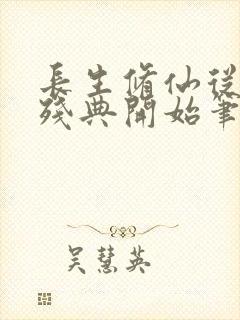 長生脩仙從
殘典開始筆
吳慧英